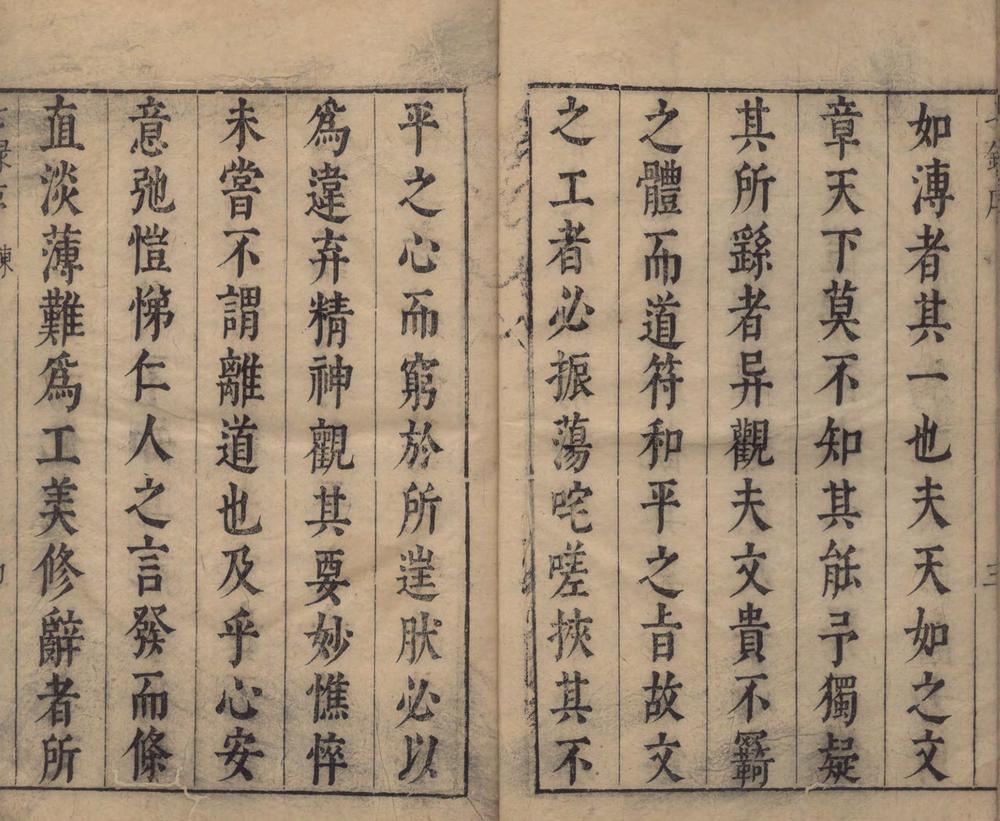 如溥者其一也夫天如之文
章天下莫不知其能予獨疑
其所繇者异觀夫文貴不羈
之體而道符和平之旨故文
之工者必振蕩咤嗟挾其不
平之心而窮於所逞肰必以
爲違弃精神觀其要妙憔悴
未嘗不謂離道也及乎心安
意弛愷悌仁人之言發而條
直淡薄難爲工美修辭者所